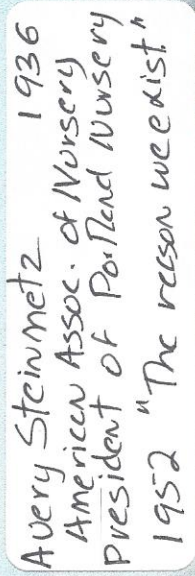 Avery Steinmetz 1936
American Assoc. of Nursery
president of Portland Nursery
1952 "The reason we exist"